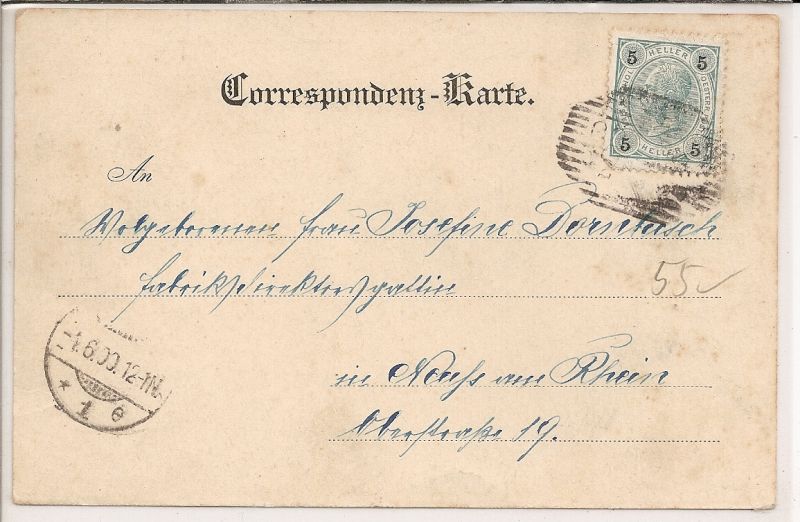 Correspondenz-Karte.
5 HELLER 5
5 HELLER 5
An
Wolgeborenen Frau Josefine Dornbusch
Fabriksdirektorsgattin
55
-1.6.00.12-1N.
* 1 e
in Neuss am Rhein
Oberstraße 19.